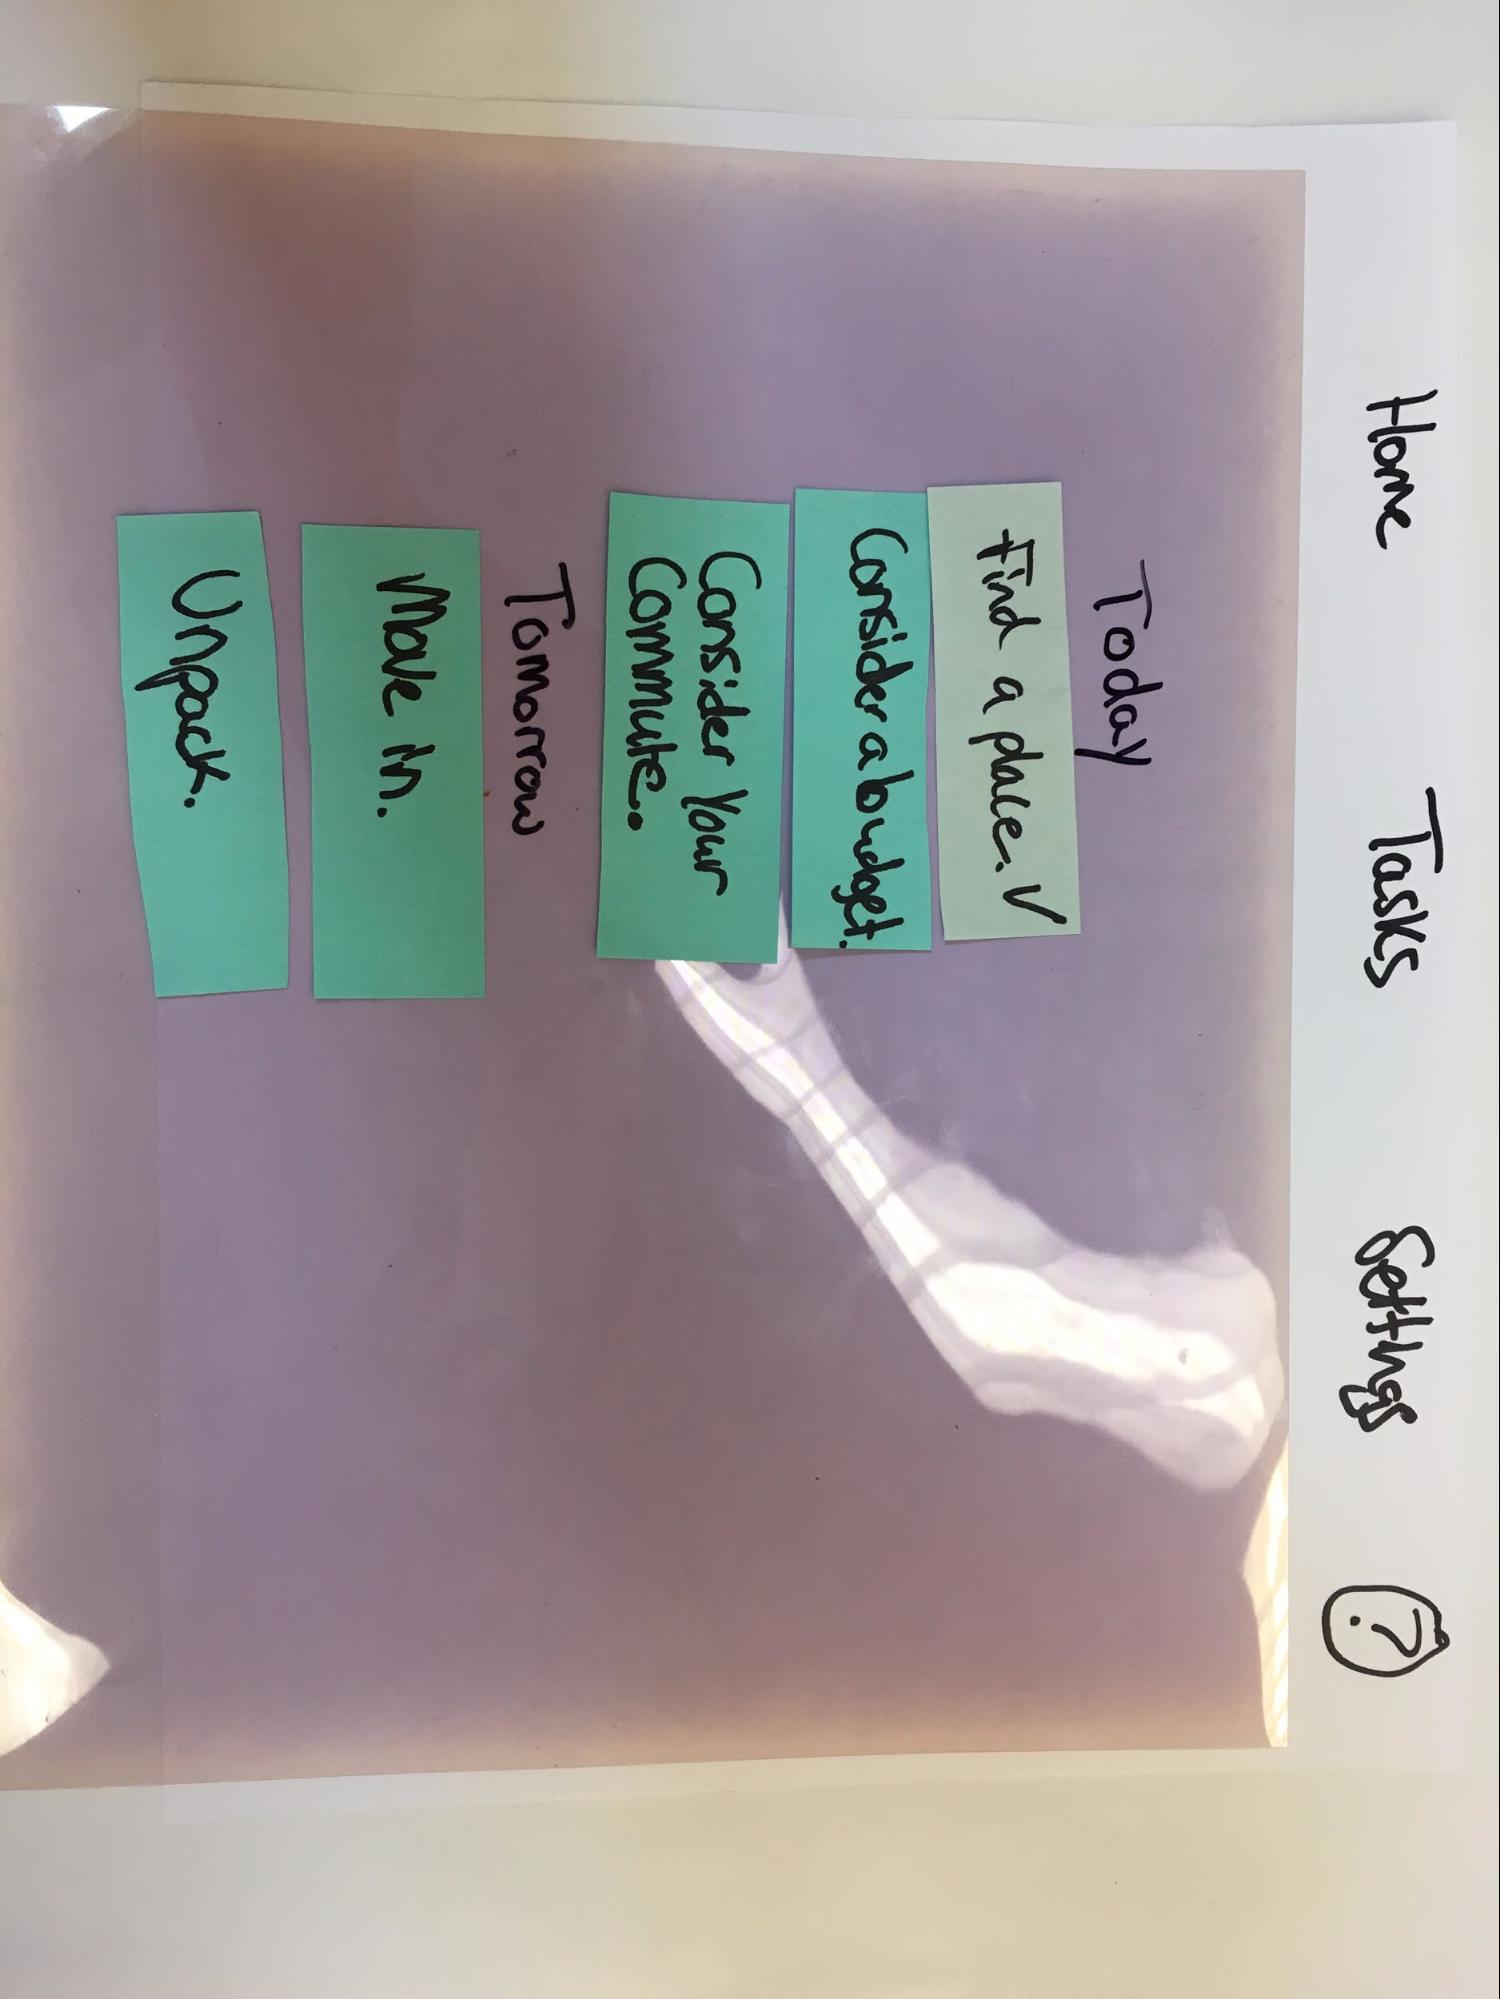 Home Tasks Settings ?
Today
Find a place. ✓
Consider a budget.
Consider your
Commute.
Tomorrow
Move in.
Unpack.